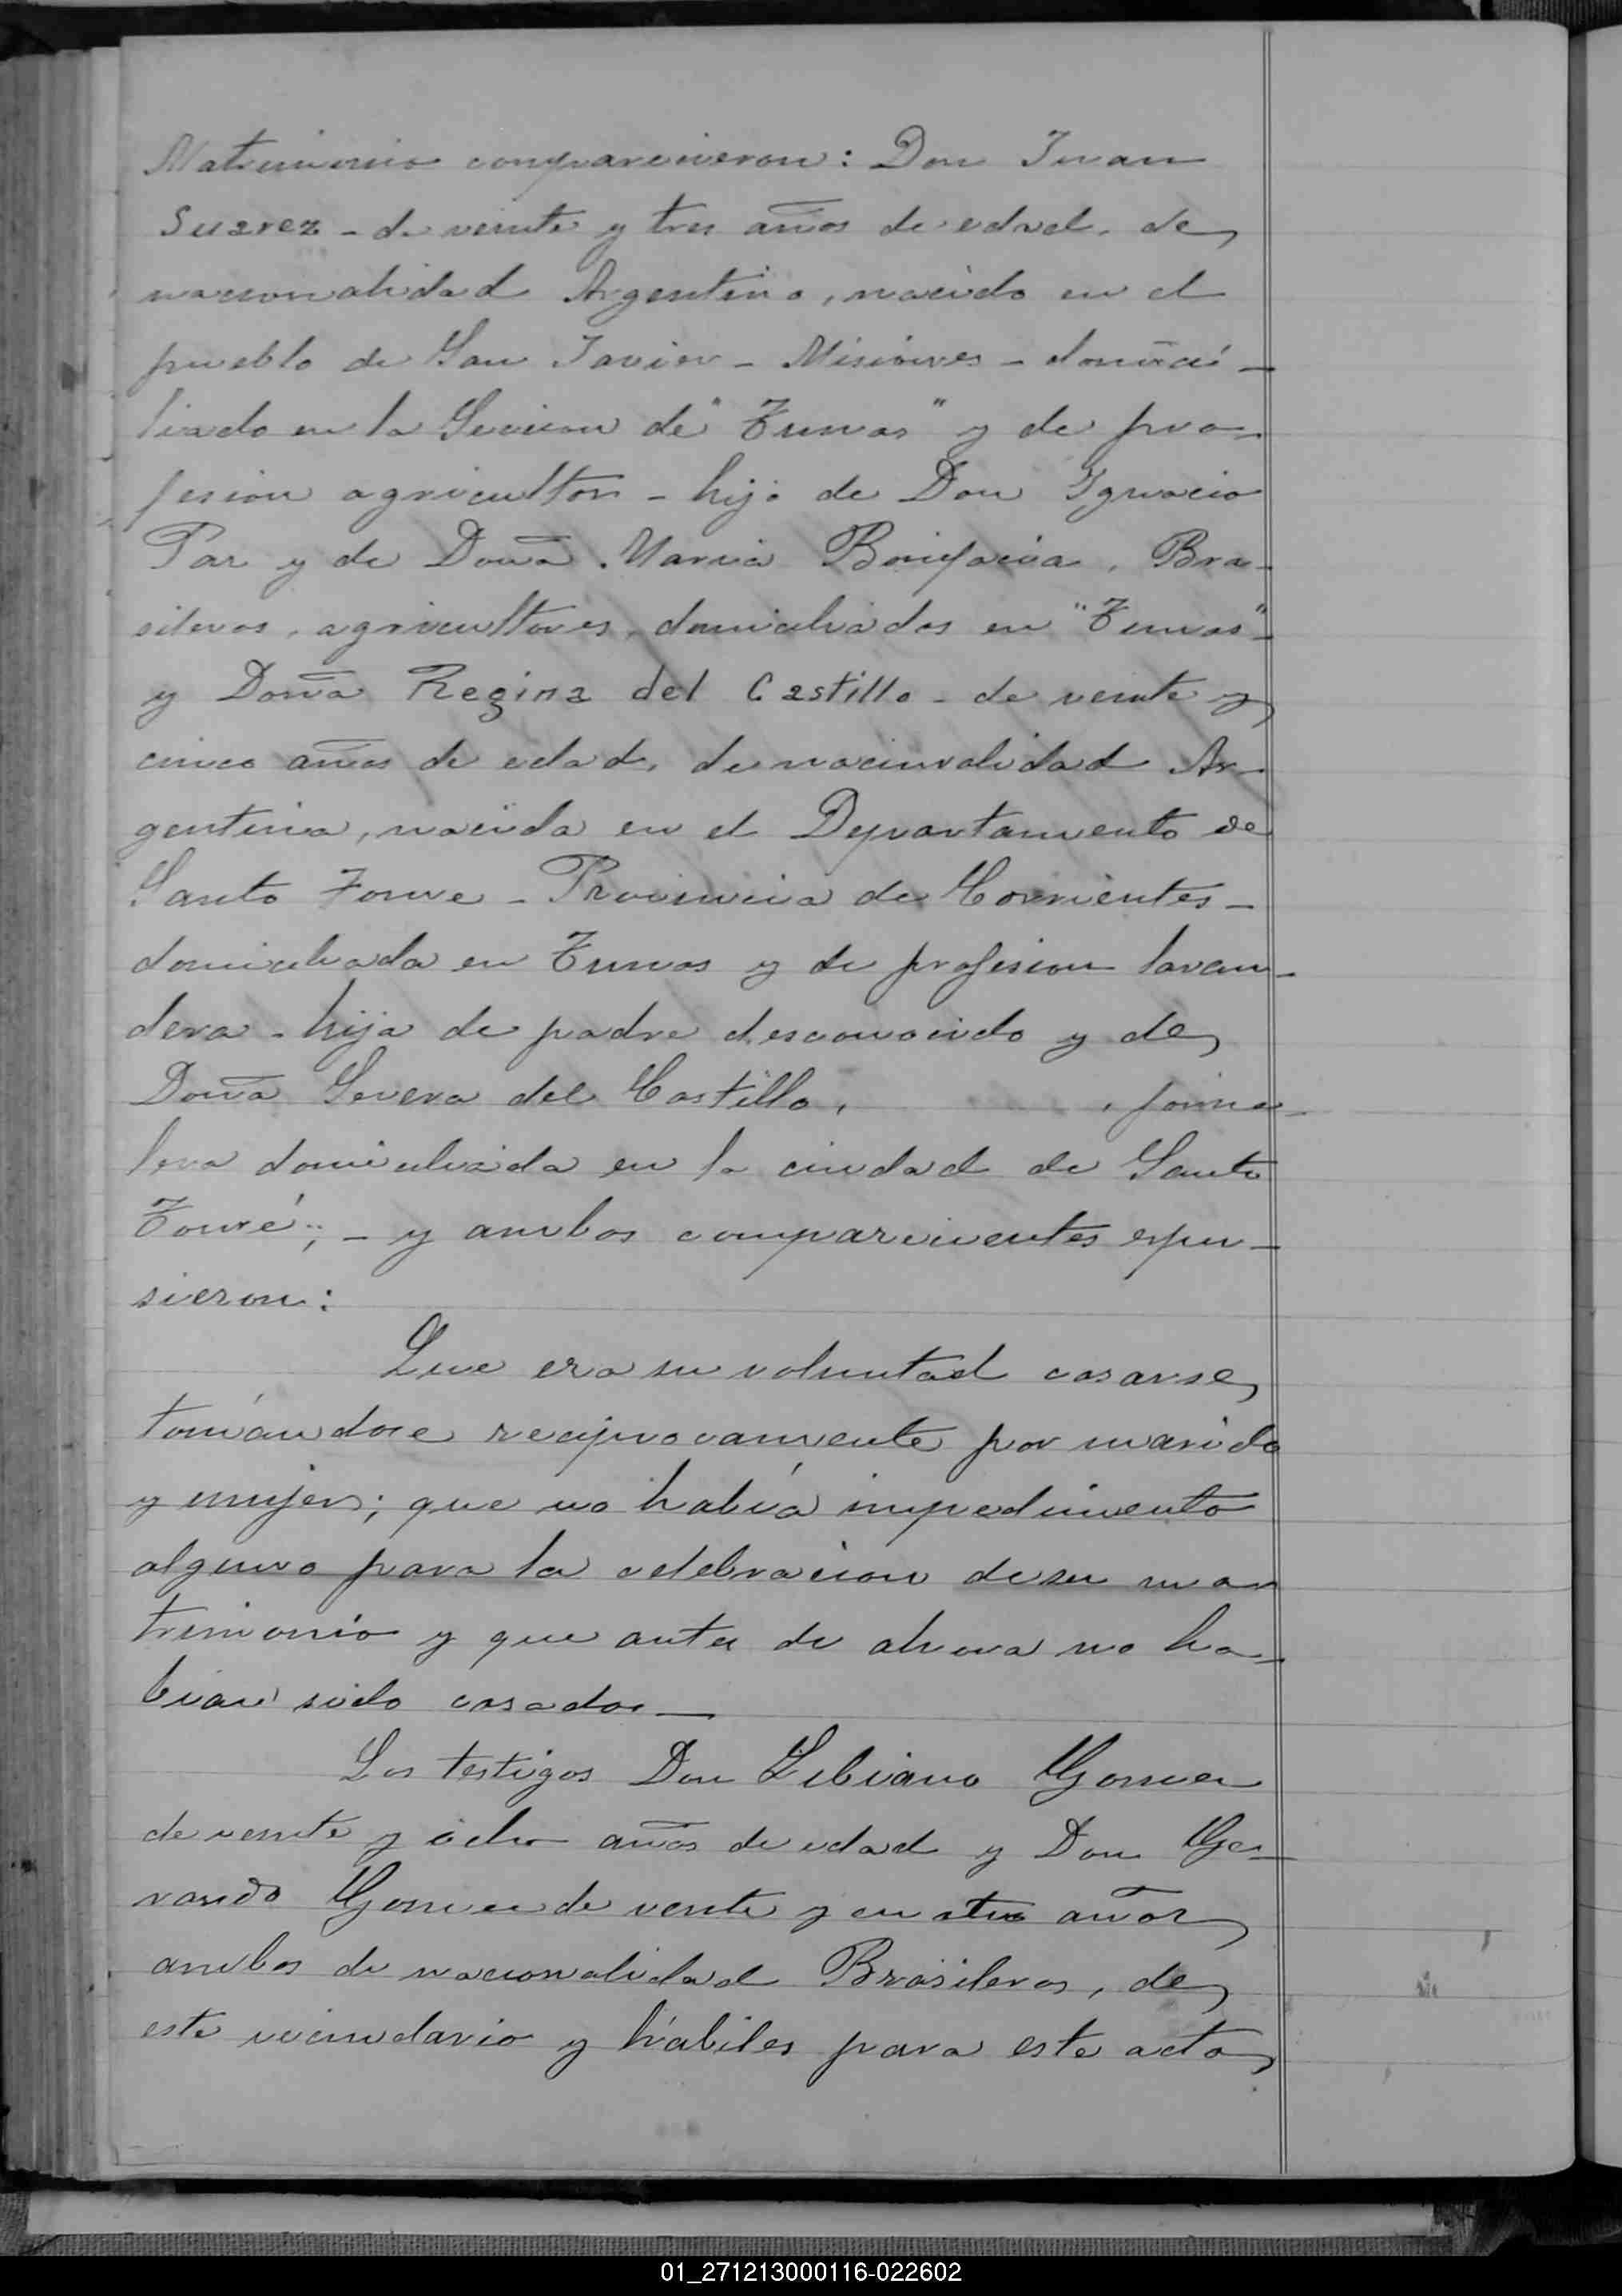 Matrimonio comparecieron: Don Juan
Suarez - de veinte y tres años de edad, de
nacionalidad Argentino, nacido en el
pueblo de San Javier - Misiones - domici-
liado en la Seccion de "Tunas" y de pro-
fesion agricultor - hijo de Don Ygnacio
Par y de Doña Maria Bonifacia, Bra-
sileros, agricultores, domiciliados en "Tunas"-
y Doña Regina del Castillo - de veinte y
cinco años de edad, de nacionalidad Ar-
gentina, nacida en el Departamento de
Santo Tome - Provincia de Corrientes -
domiciliada en Tunas y de profesion lavan-
dera - hija de padre desconocido y de
Doña Severa del Castillo, , jorna-
lera domiciliada en la ciudad de Santo
Tomé; - y ambos comparecientes espu-
sieron:
Que era su voluntad casarse,
tomándose reciprocamente por marido
y mujer; que no había impedimento
alguno para la celebracion de su ma-
trimonio y que antes de ahora no ha-
bian sido casados -
Los testigos Don Libiano Gomez
de veinte y ocho años de edad y Don
Gomez de veinte y cuatro años
ambos de nacionalidad Brasileros, de
este vecindario y hábiles para este acto,
01_271213000116-022602